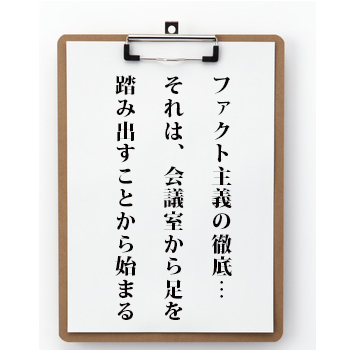 ファクト主義の徹底…
それは、会議室から足を
踏み出すことから始まる